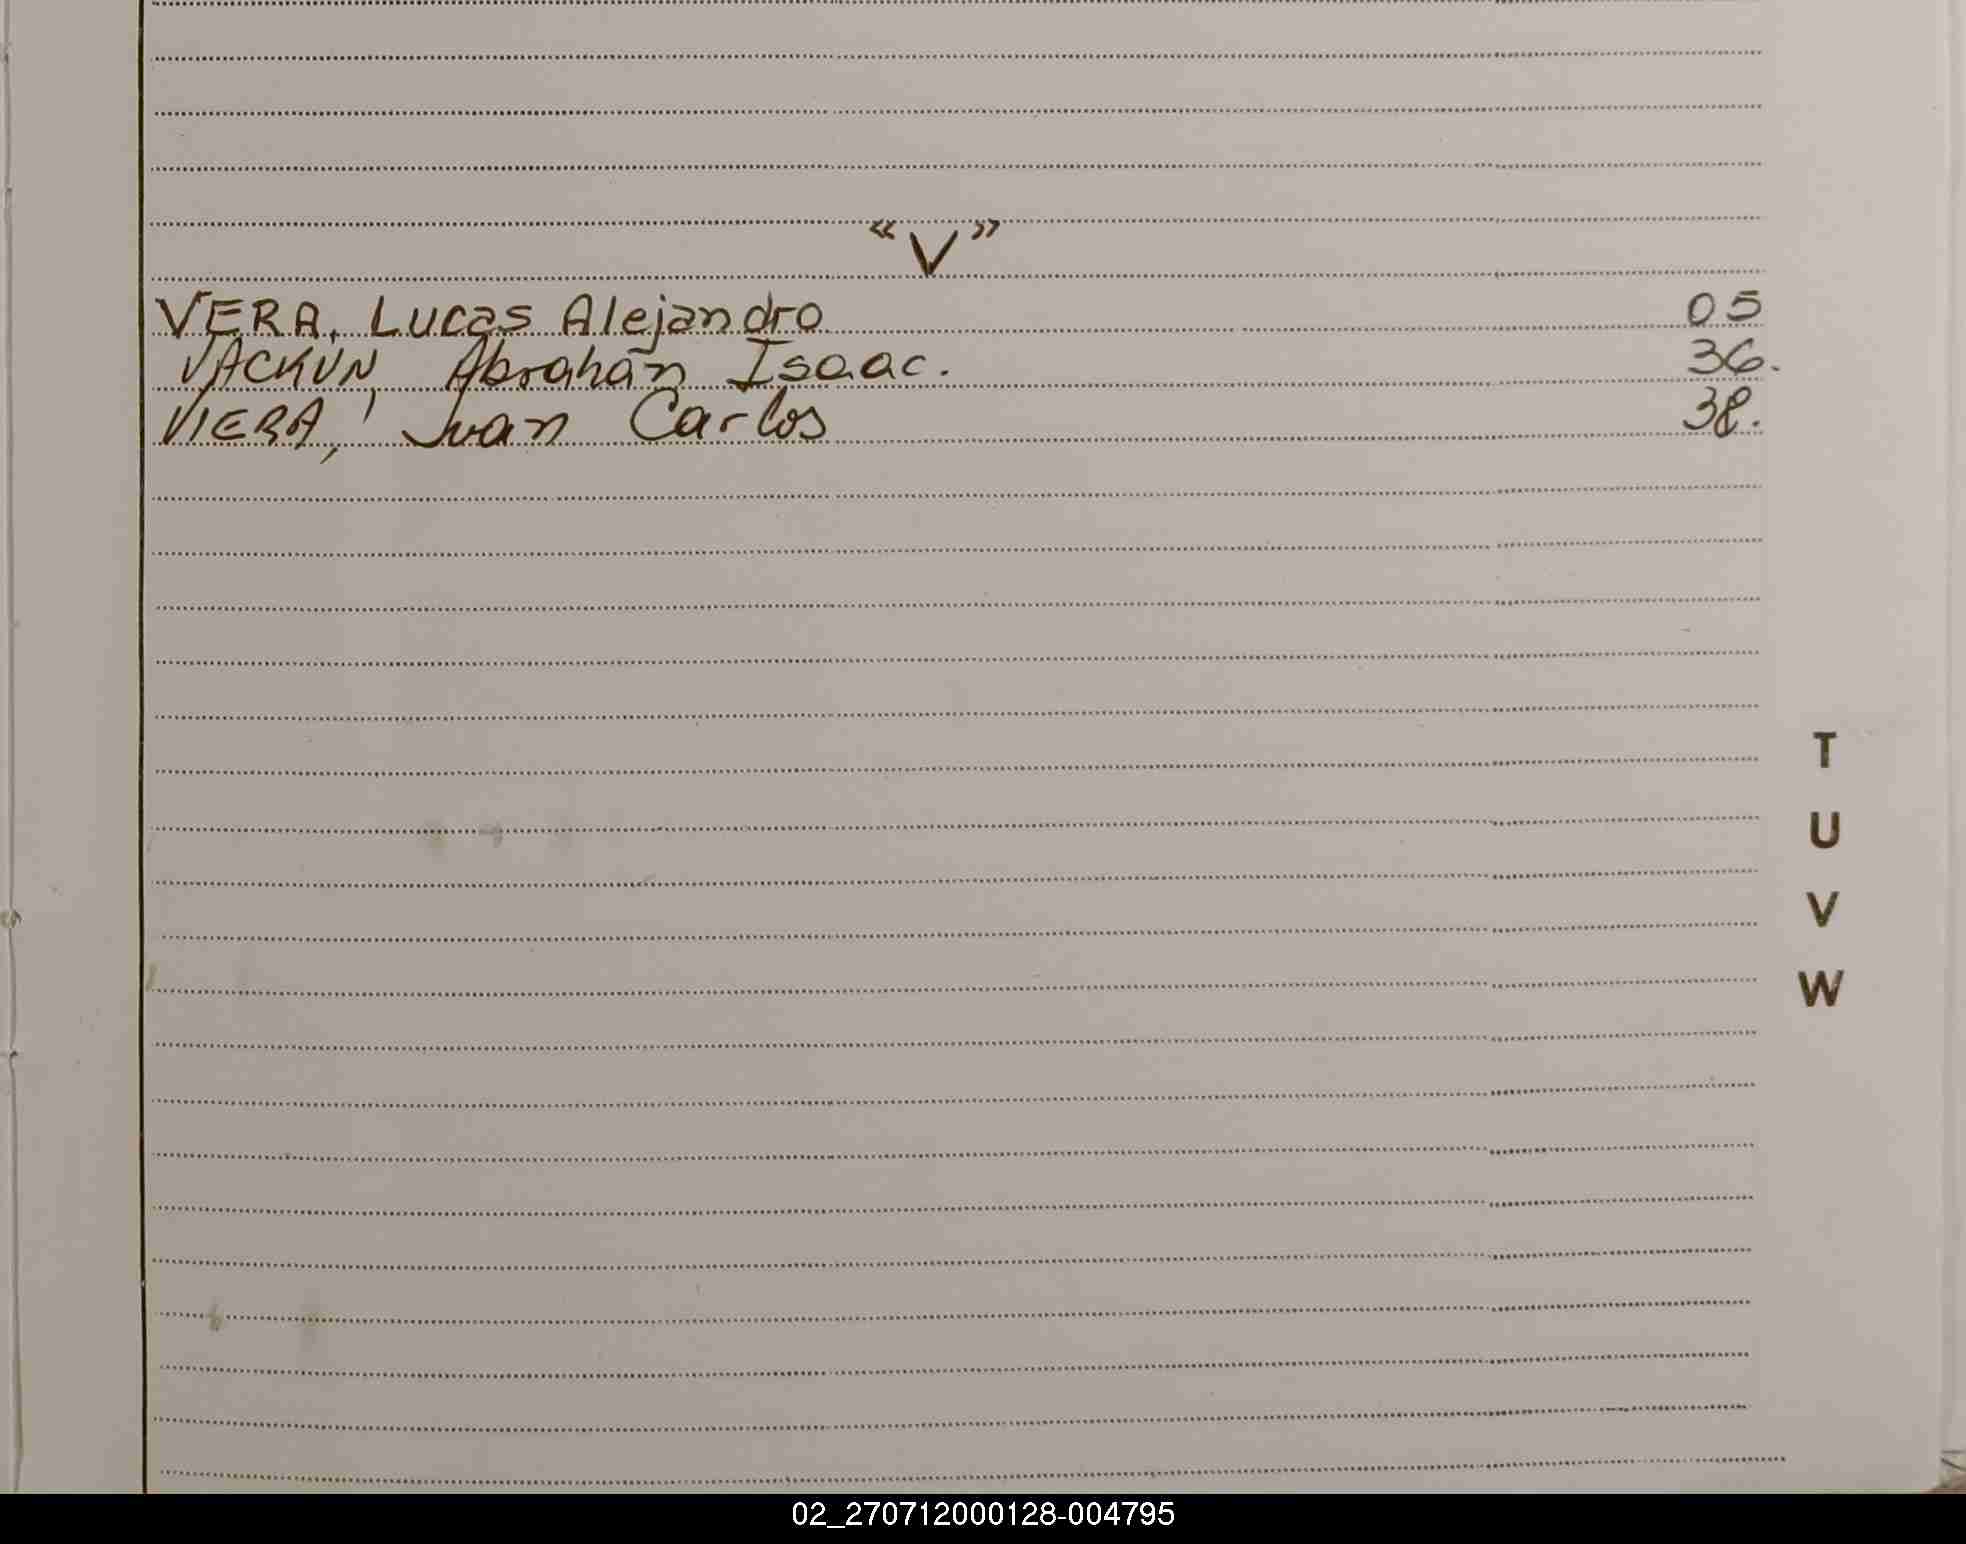 “V”
VERA, Lucas Alejandro 05
VACKUN, Abrahán Isaac. 36.
VIERA, Juan Carlos 38.
T
U
V
W
02_270712000128-004795